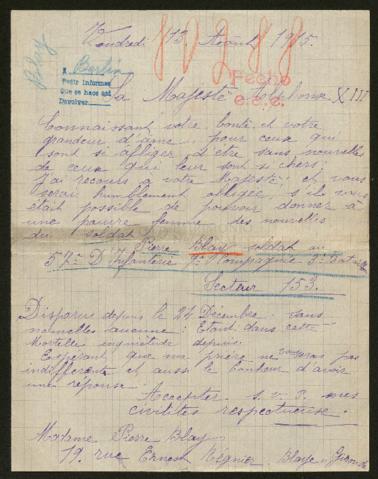 Blay
Vendredi 13 Août 1915.
A Berlin
Pedir informes
Que se haga así
Devolver
Fecho
e.e.e.
Sa Majesté Alphonse XIII
Connaissant votre bonté et votre
grandeur d'âme pour ceux qui
sont si affliger d'être sans nouvelle
de ceux qui leur sont si chers;
J'ai recours à votre Majesté et vous
serai humblement obligée s'il vous
était possible de pouvoir donner à
une pauvre femme des nouvelles
du soldat
Pierre Blay soldat au
D'Infanterie Compagnie
Secteur 153.
Disparu depuis le 24 Décembre sans
nouvelles aucune: Etant dans cette
mortelle inquiétude depuis.
Espérant que ma prière ne vous sera pas
indifférente et aussi le bonheur d'avoir
une réponse.
Accepter s.v.p. mes
civilités respectueuse.
Madame Pierre Blay
19. rue Ernest Régnier. Blaye Gironde